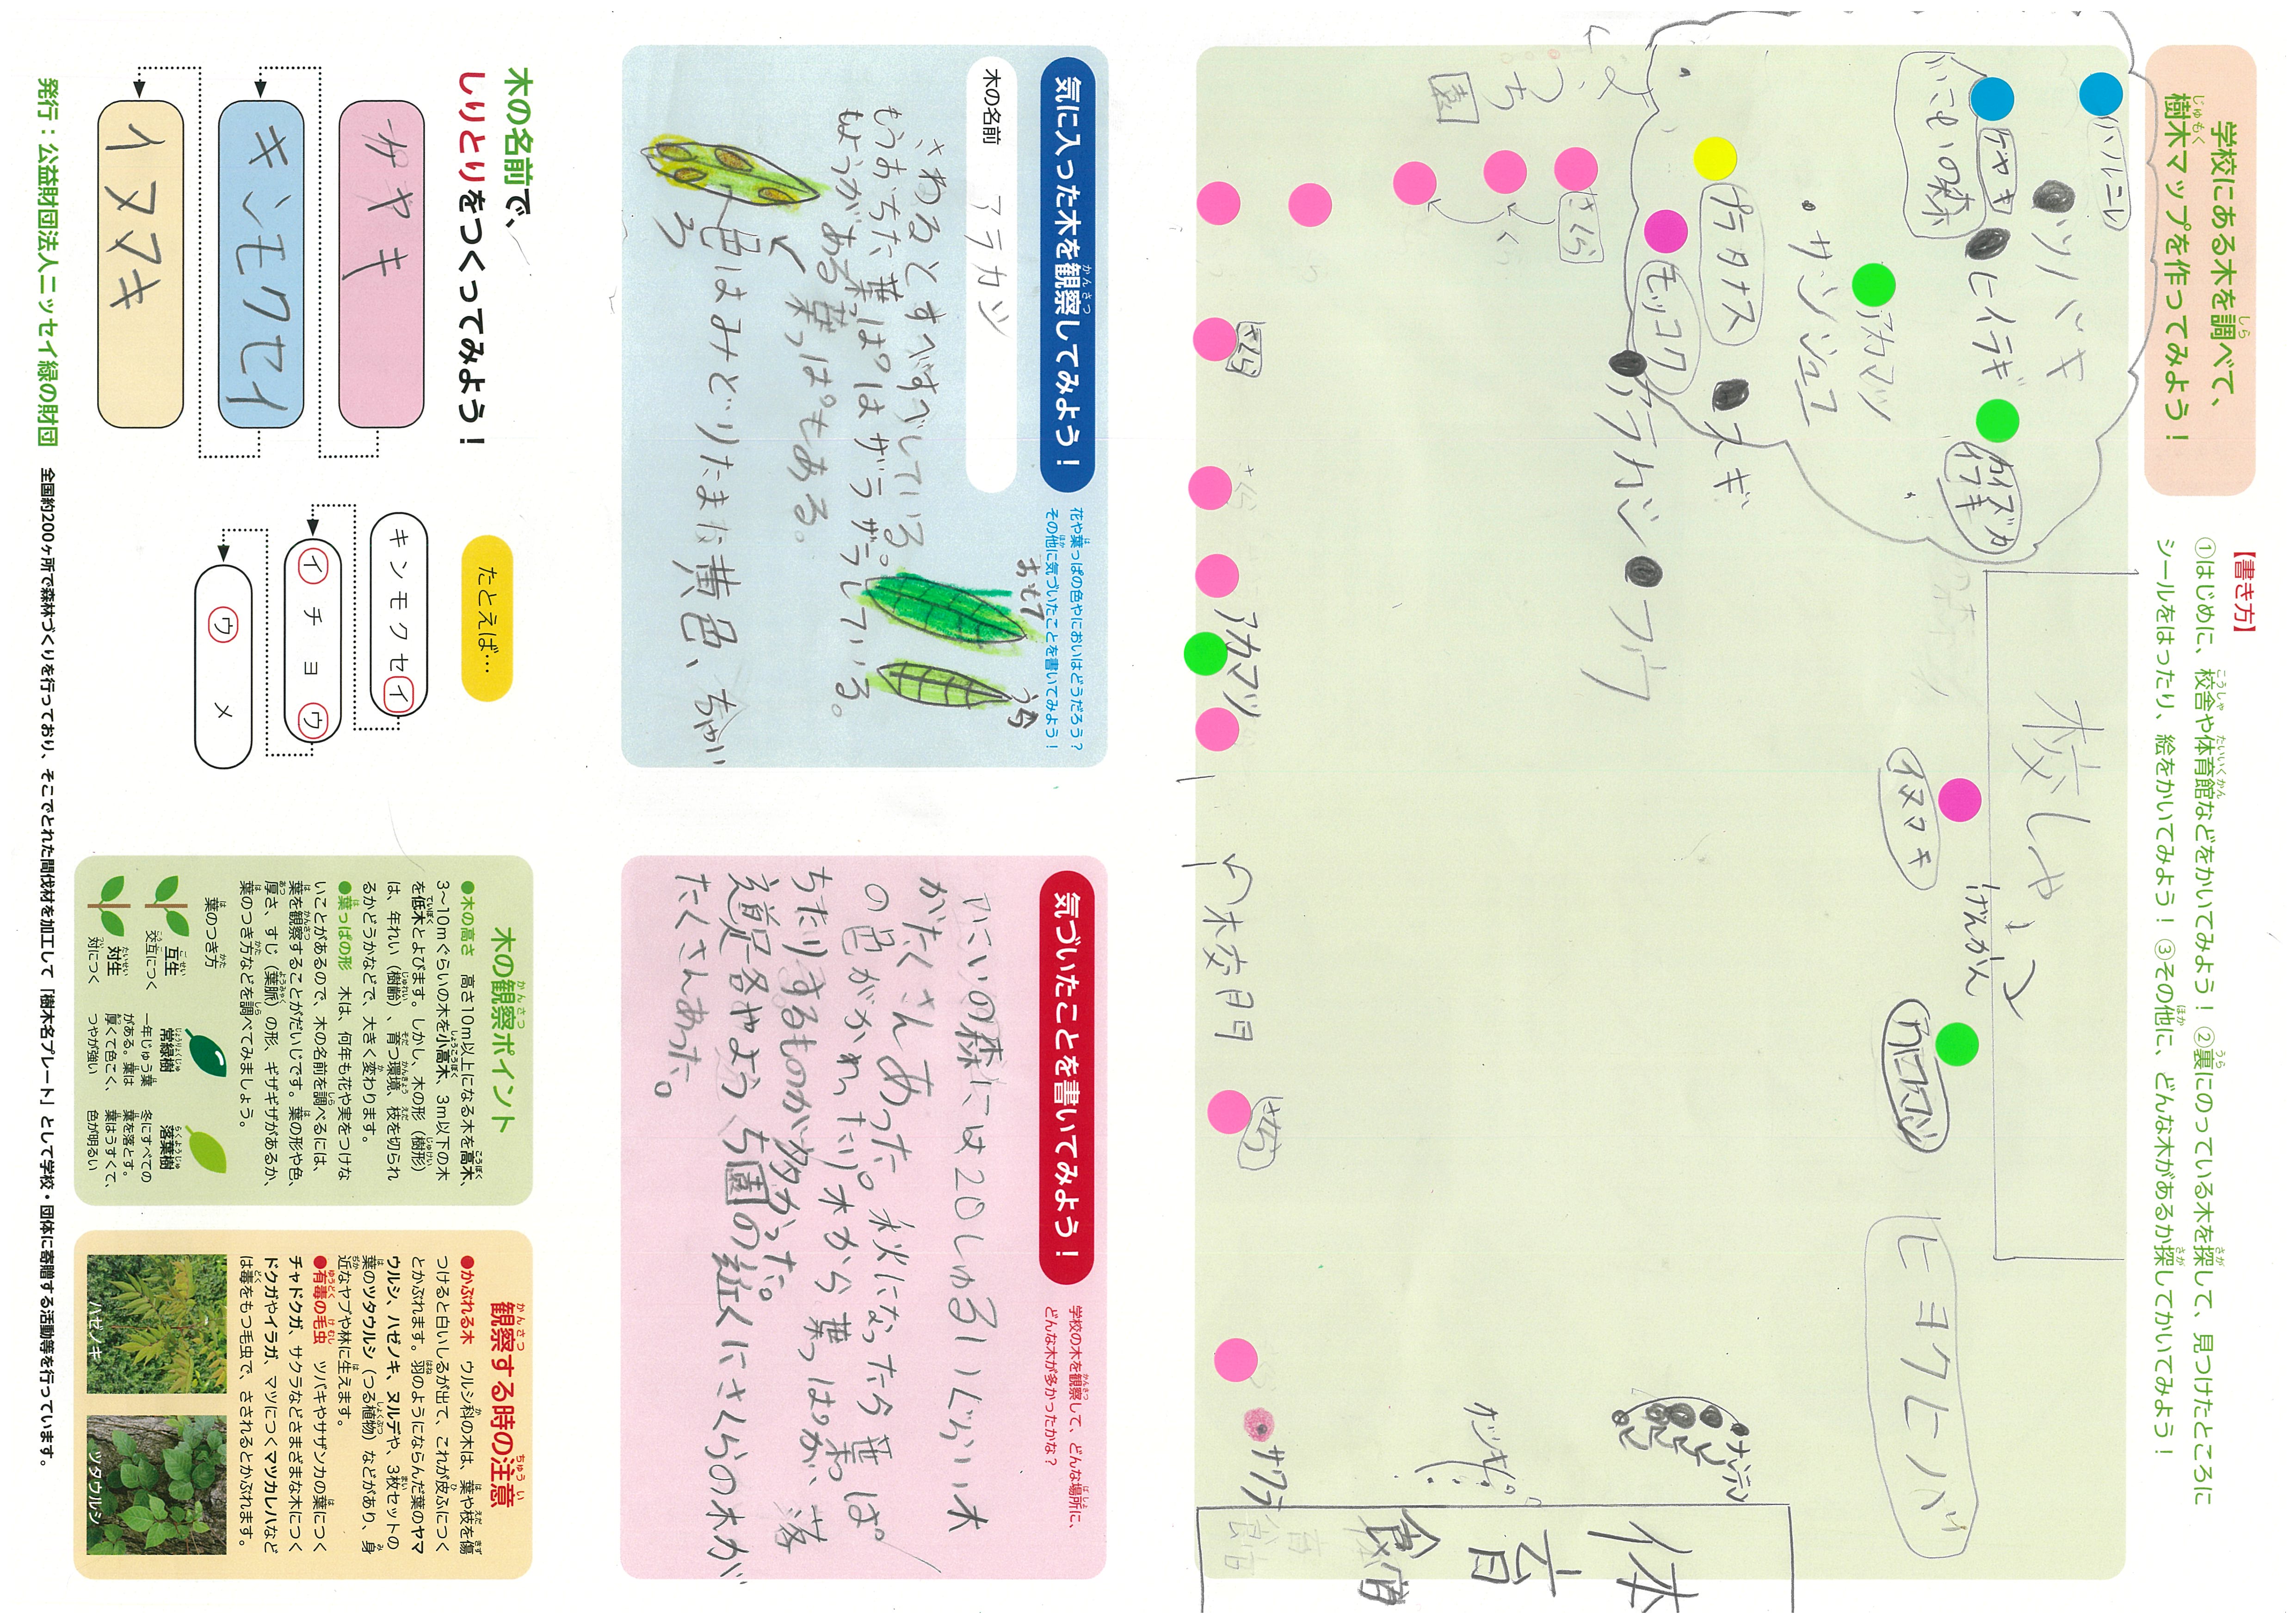 学校にある木を調べて、
樹木マップを作ってみよう！
【書き方】
①はじめに、校舎や体育館などをかいてみよう！ ②裏にのっている木を探して、見つけたところに
シールをはったり、絵をかいてみよう！ ③その他に、どんな木があるか探してかいてみよう！
ハルニレ
ツバキ
ケヤキ
ヒイラギ
カイズカイブキ
アカマツ
サンジュユ
プラタナス
スギ
モッコク
アラカシ
フウ
さくら
さくら
アカマツ
校しゃ
げんかん
イヌマキ
クロマツ
ヒヨクヒバ
校門
さくら
サクラ
体育館
気に入った木を観察してみよう！
花や葉っぱの色やにおいはどうだろう？
その他に気づいたことを書いてみよう！
木の名前
アラカシ
さわるとすべすべしている。
もうおちた葉っぱはザラザラしている。
もようがある葉っぱもある。
色はみどりたまに黄色、ちゃいろ
おもて
うら
気づいたことを書いてみよう！
学校の木を観察して、どんな場所に、
どんな木が多かったかな？
いこいの森には20しゅるいぐらい木
がたくさんあった。秋になったら葉っぱ
の色がかわったり木から葉っぱが、落
ちたりするものが多かった。
道路やようち園の近くにさくらの木が
たくさんあった。
木の名前で、
しりとりをつくってみよう！
ケヤキ
キンモクセイ
イヌマキ
たとえば…
キンモクセイ
イチョウ
ウメ
木の観察ポイント
●木の高さ 高さ10m以上になる木を高木、
3〜10mぐらいの木を小高木、3m以下の木
を低木とよびます。しかし、木の形（樹形）
は、年れい（樹齢）、育つ環境、枝を切られ
るかどうかなどで、大きく変わります。
●葉っぱの形 木は、何年も花や実をつけな
いことがあるので、木の名前を調べるには、
葉を観察することがだいじです。葉の形や色、
厚さ、すじ（葉脈）の形、ギザギザがあるか、
葉のつき方などを調べてみましょう。
葉のつき方
互生
交互につく
対生
対につく
常緑樹
一年じゅう葉
がある。葉は
厚くて色こく、
つやが強い
落葉樹
冬にすべての
葉を落とす。
葉はうすくて、
色が明るい
観察する時の注意
●かぶれる木 ウルシ科の木は、葉や枝を傷
つけると白いしるが出て、これが皮ふにつく
とかぶれます。羽のようにならんだ葉のヤマ
ウルシ、ハゼノキ、ヌルデや、3枚セットの
葉のツタウルシ（つる植物）などがあり、身
近なヤブや林に生えます。
●有毒の毛虫 ツバキやサザンカの葉につく
チャドクガ、サクラなどさまざまな木につく
ドクガやイラガ、マツにつくマツカレハなど
は毒をもつ毛虫で、さされるとかぶれます。
ハゼノキ
ツタウルシ
発行：公益財団法人ニッセイ緑の財団
全国約200ヶ所で森林づくりを行っており、そこでとれた間伐材を加工して「樹木名プレート」として学校・団体に寄贈する活動等を行っています。